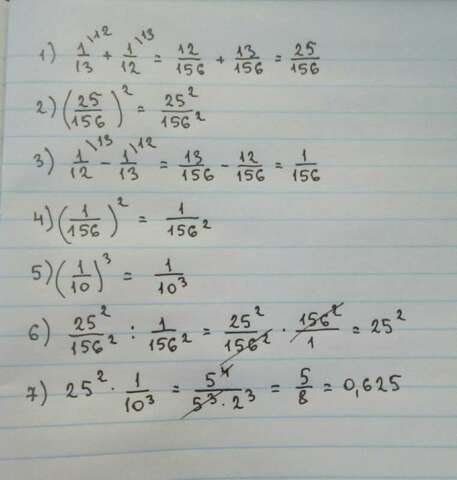 1) 1/13 \12 + 1/12 \13 = 12/156 + 13/156 = 25/156
2) (25/156)² = 25²/156²
3) 1/12 \13 - 1/13 \12 = 13/156 - 12/156 = 1/156
4) (1/156)² = 1/156²
5) (1/10)³ = 1/10³
6) 25²/156² : 1/156² = 25²/156² · 156²/1 = 25²
7) 25² · 1/10³ = 5⁴/5³·2³ = 5/8 = 0,625